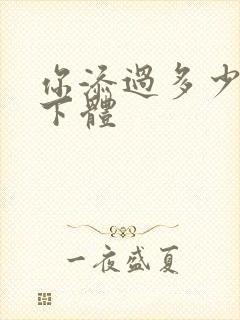 你添過多少
下體
一夜盛夏